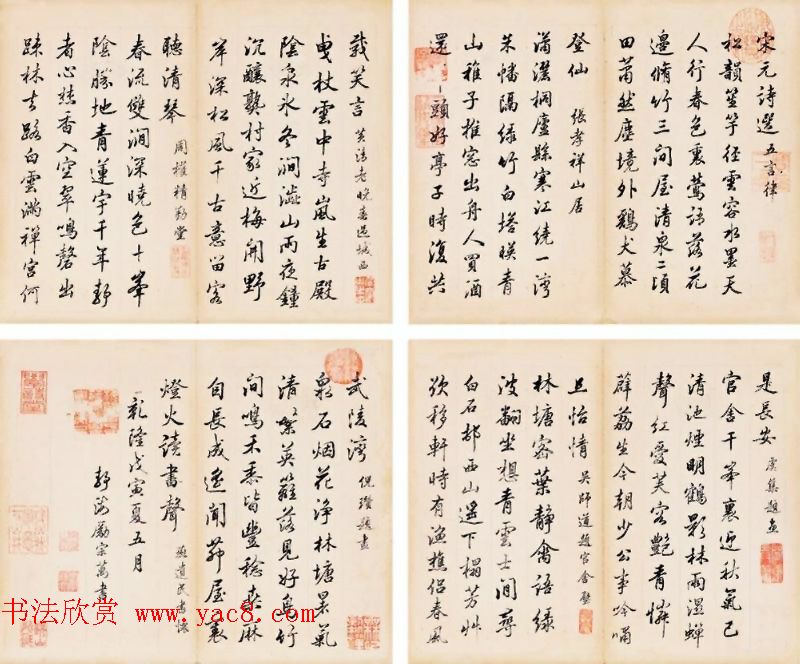 宋元詩選五言律
松韻笙竽徑雲容水墨天
人行春色裏鶯語落花
邊脩竹三間屋清泉二頃
田蕭然塵境外鷄犬慕
登仙 張孝祥山居
瀟灑桐廬縣寒江繞一灣
朱幡隔綠竹白塔暎青
山稚子推窓出舟人買酒
還頭好亭子時復共
載笑言 黃清老晚春過城西
曳杖雲中寺嵐生古殿
陰泉氷冬澗澁山雨夜鐘
沉釀熟村家近梅開野
岸深松風千古意留客
聽清琴 周權精勤堂
春流雙澗深曉色十峯
陰勝地青蓮宇千年靜
者心香入空翠鳴磬出
疎林去路白雲滿禪宮何
是長安 虞集題畫
官舍千峯裏迎秋氣已
清池煙明鶴影林雨濕蟬
聲紅愛芙容艷青憐
薜荔生今朝少公事吟嘯
且怡情 吳師道題官舍壁
林塘容葉靜禽語綠
波翻坐想青雲士閒尋
白石邨西山下榻芳艸
欲移軒時有漁樵侶春風
武陵灣 倪瓚題畫
泉石烟花浄林塘景氣
清繁英籬落見好鳥竹
間鳴禾黍皆豐稔桑麻
自長成遙聞茆屋裏
燈火讀書聲 遺民書懷
乾隆戊寅夏五月
靜海勵宗萬書
书法欣赏 www.yac8.com